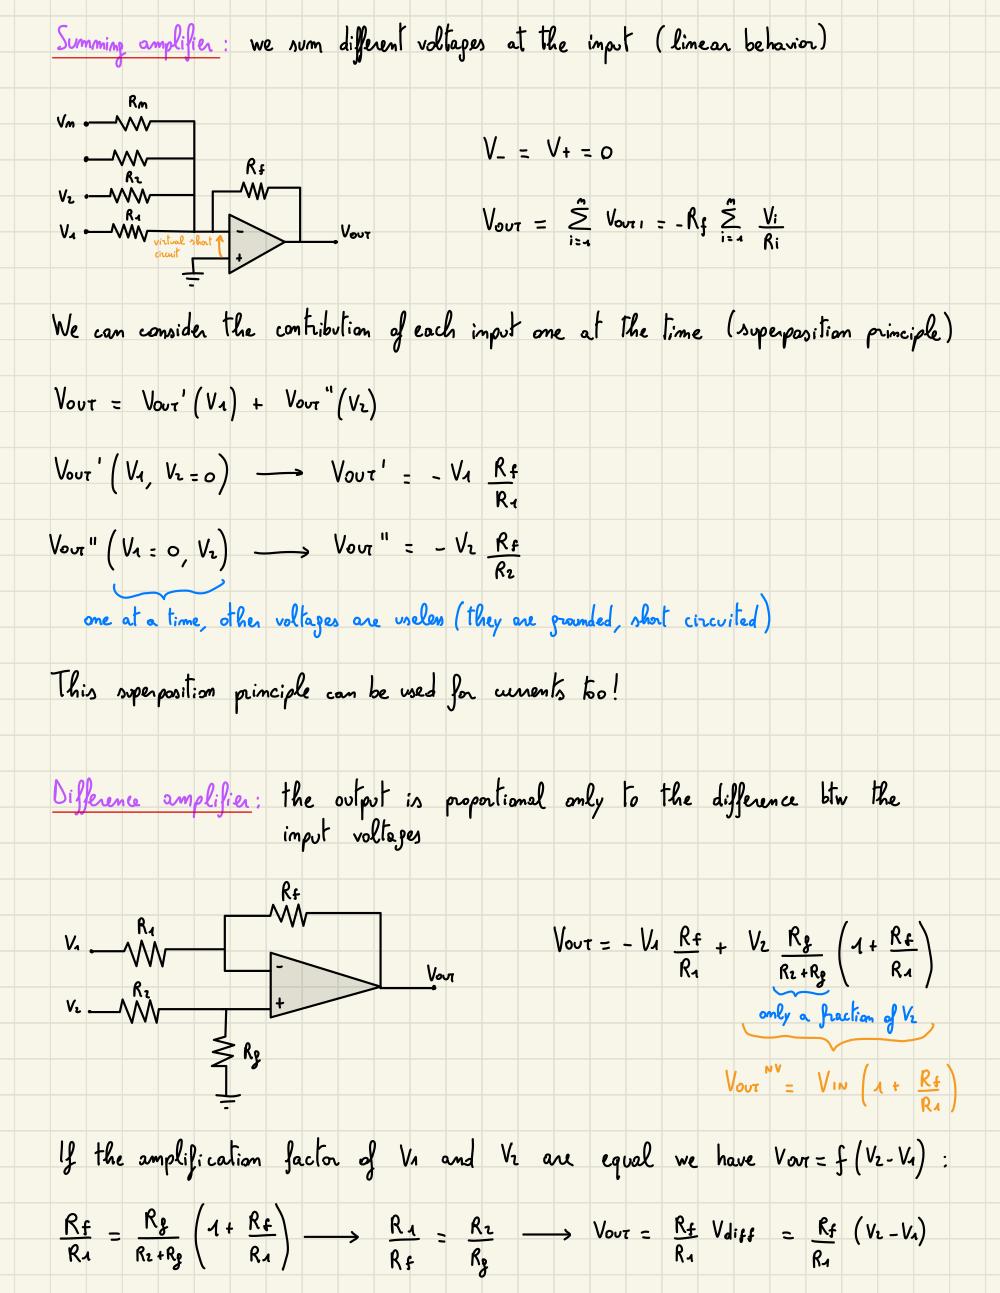 Summing amplifier: we sum different voltages at the input (linear behavior)
Rm
Vm
R2
V2
R1
V1
Rf
virtual short
circuit
-
+
VOUT
V_ = V+ = 0
VOUT = Σ_{i=1}^{m} VOUTi = -Rf Σ_{i=1}^{m} Vi/Ri
We can consider the contribution of each input one at the time (superposition principle)
VOUT = VOUT'(V1) + VOUT"(V2)
VOUT'(V1, V2 = 0) → VOUT' = - V1 Rf/R1
VOUT"(V1 = 0, V2) → VOUT" = - V2 Rf/R2
one at a time, other voltages are useless (they are grounded, short circuited)
This superposition principle can be used for currents too!
Difference amplifier: the output is proportional only to the difference btw the
input voltages
Rf
R1
V1
R2
V2
-
+
VOUT
Rg
VOUT = - V1 Rf/R1 + V2 Rg/(R2+Rg) (1 + Rf/R1)
only a fraction of V2
VOUT^NV = VIN (1 + Rf/R1)
If the amplification factor of V1 and V2 are equal we have VOUT = f(V2-V1) :
Rf/R1 = Rg/(R2+Rg) (1 + Rf/R1) → R1/Rf = R2/Rg → VOUT = Rf/R1 Vdiff = Rf/R1 (V2-V1)